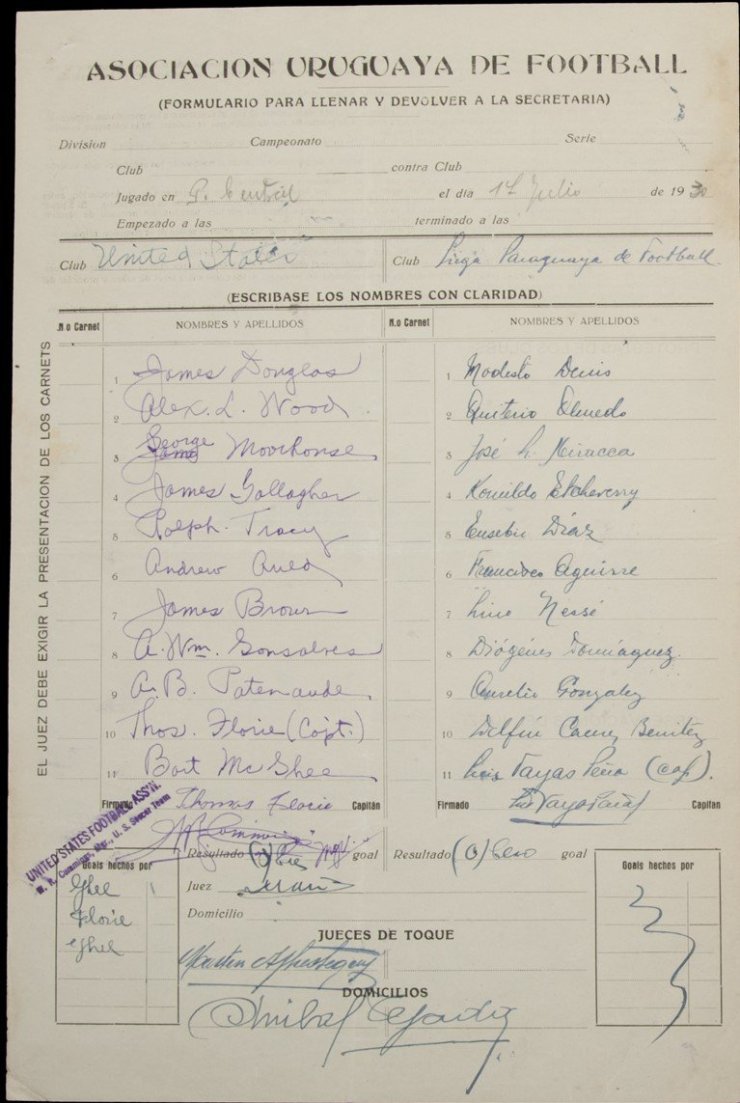 ASOCIACION URUGUAYA DE FOOTBALL
(FORMULARIO PARA LLENAR Y DEVOLVER A LA SECRETARIA)
Division Campeonato Serie
Club contra Club
Jugado en P. Central el dia 17 Julio de 1930
Empezado a las terminado a las
Club United States Club Liga Paraguaya de Football
(ESCRIBASE LOS NOMBRES CON CLARIDAD)
N.o Carnet NOMBRES Y APELLIDOS N.o Carnet NOMBRES Y APELLIDOS
EL JUEZ DEBE EXIGIR LA PRESENTACION DE LOS CARNETS
1 James Douglas 1 Modesto Denis
2 Alex. L. Wood 2 Quiterio Olmedo
3 George Moorhouse 3 José L. Miracca
4 James Gallagher 4 Romildo Etcheverry
5 Ralph Tracy 5 Eusebio Díaz
6 Andrew Auld 6 Francisco Aguirre
7 James Brown 7 Lino Nessi
8 A. Wm. Gonsalves 8 Diógenes Domínguez
9 A. B. Patenaude 9 Aurelio González
10 Thos. Florie (Capt.) 10 Delfín Benitez
11 Bart McGhee 11 Luis Vargas Peña (cap).
Firmado Thomas Florie Capitán Firmado Capitan
UNITED STATES FOOTBALL ASS'N.
W. R. Cummings, Mgr., U. S. Soccer Team
Resultado (3) goal Resultado (0) Cero goal
Goals hechos por Goals hechos por
Ghee 1
Florie
Ghee
Juez
Domicilio
JUECES DE TOQUE
DOMICILIOS
Anibal